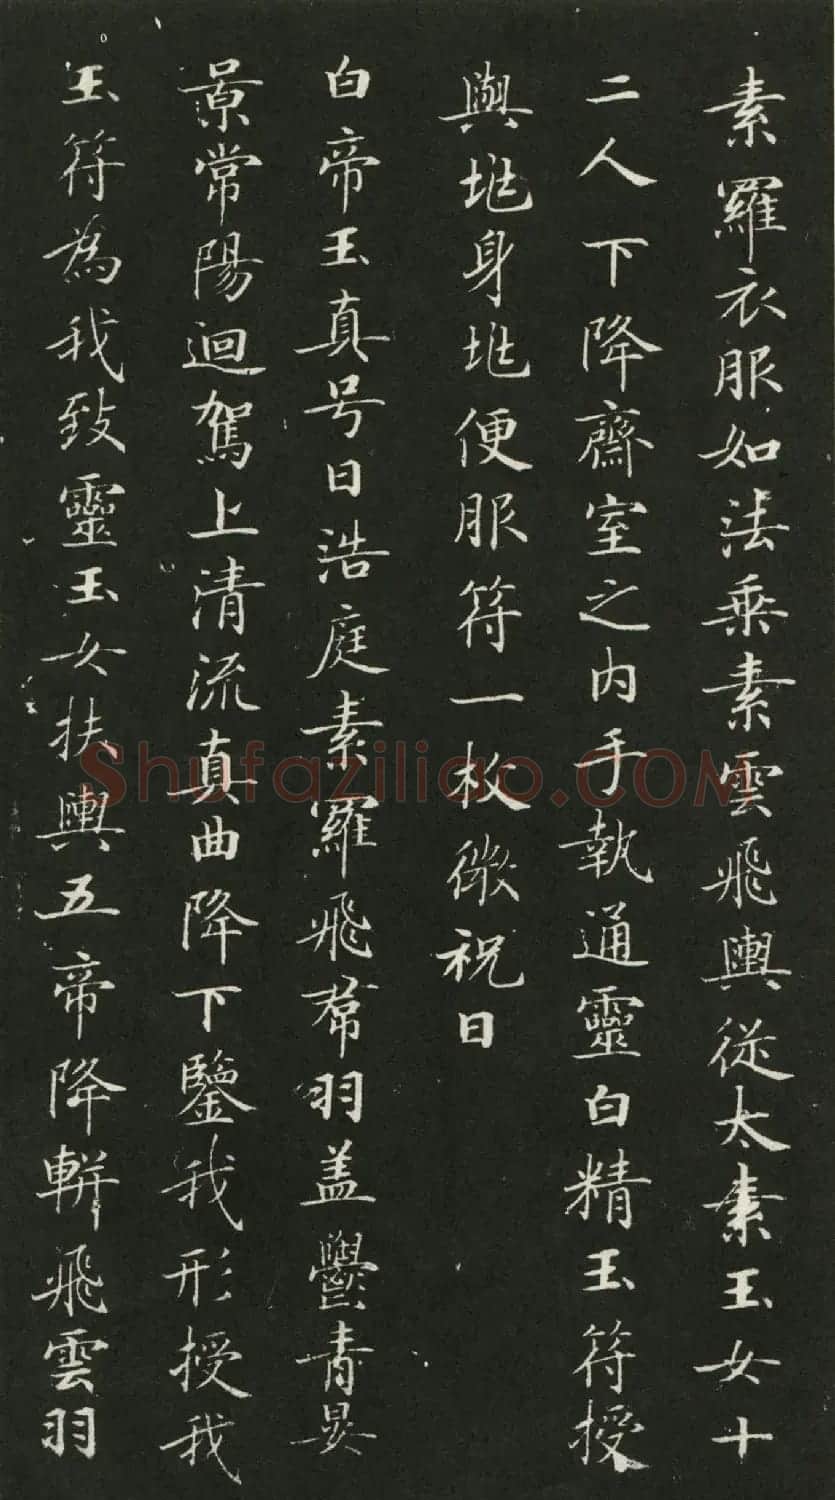 素羅衣服如法乘素雲飛輿從太素玉女十
二人下降齋室之內手執通靈白精玉符授
與兆身兆便服符一枚微祝曰
白帝玉真号曰浩庭素羅飛帬羽盖鬱青昊
景常陽迴駕上清流真曲降下鑒我形授我
玉符為我致靈玉女扶輿五帝降軿飛雲羽
Shufaziliao.COM